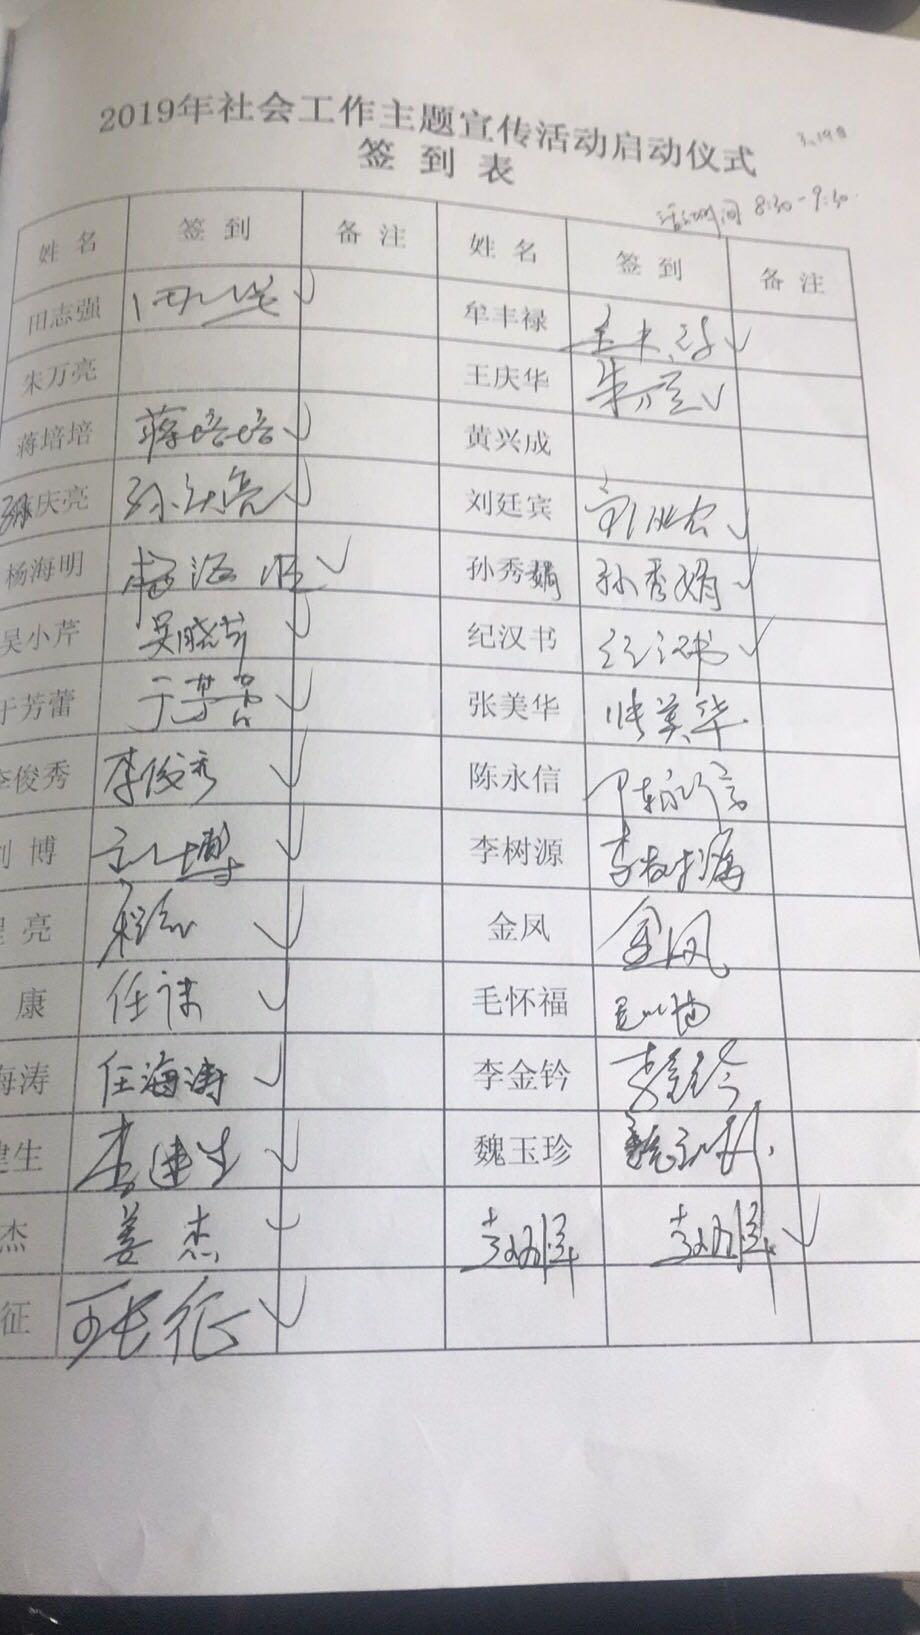 2019年社会工作主题宣传活动启动仪式
签到表
3.19日
活动时间 8:30-9:30
姓名 签到 备注 姓名 签到 备注
田志强 牟丰禄
朱万亮 王庆华 朱万亮
蒋培培 蒋培培 黄兴成
孙庆亮 孙庆亮 刘廷宾
杨海明 杨海明 孙秀娟 孙秀娟
吴小芹 吴晓芹 纪汉书 纪汉书
于芳蕾 于芳蕾 张美华 张美华
李俊秀 李俊秀 陈永信 陈永信
刘博 刘博 李树源 李树源
程亮 程亮 金凤 金凤
康 任康 毛怀福
海涛 任海涛 李金钤 李金钤
建生 李建生 魏玉珍 魏玉珍
杰 姜杰
征